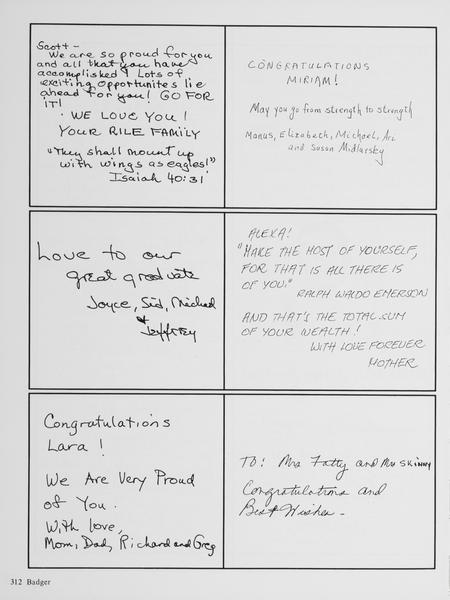 Scott -
We are so proud for you
and all that you have
accomplished! Lots of
exciting opportunites lie
ahead for you! GO FOR
IT!
· WE LOVE YOU!
YOUR RILE FAMILY
"They shall mount up
with wings as eagles!"
Isaiah 40:31
CONGRATULATIONS
MIRIAM!
May you go from strength to strength
Manus, Elizabeth, Michael, Ari
and Susan Midlarsky
Love to our
great graduate
Joyce, Sid, Michael
& Jeffrey
ALEXA!
"MAKE THE MOST OF YOURSELF,
FOR THAT IS ALL THERE IS
OF YOU."
RALPH WALDO EMERSON
AND THAT'S THE TOTAL SUM
OF YOUR WEALTH!
WITH LOVE FOREVER
MOTHER
Congratulations
Lara!
We Are Very Proud
of You.
With love,
Mom, Dad, Richard and Greg
To: Mrs Fatty and Mr SKINNY
Congratulations and
Best Wishes -
312 Badger